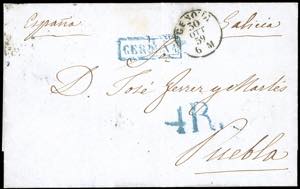 España Galicia
GENOVA
30
OTT
59
6 M
CERDEÑA
D. José Ferrer y Martés
4R.
Puebla